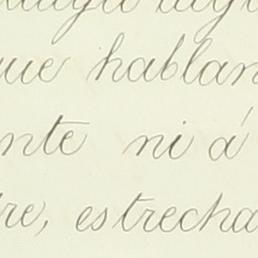 que hablan
nte ni á
dre, estrecha